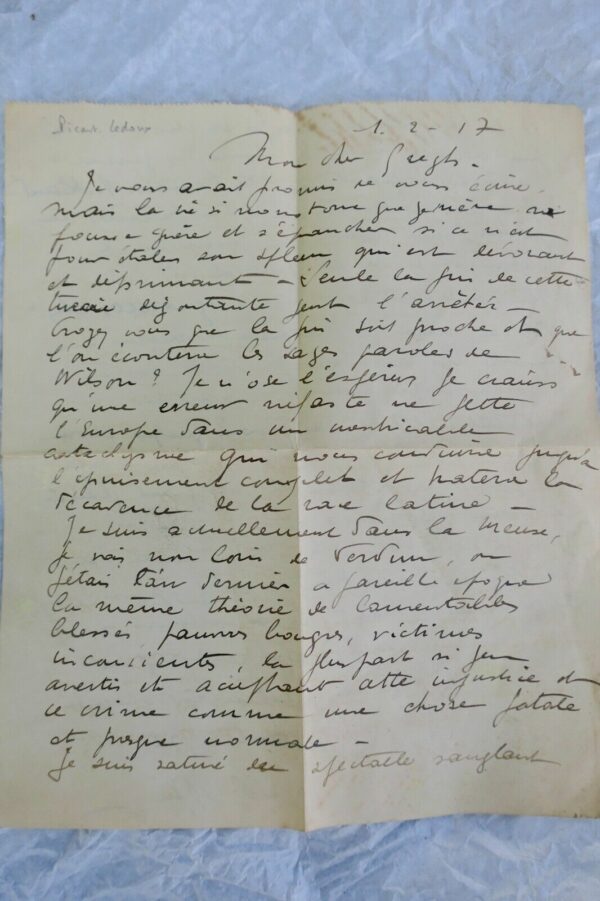 Picart Ledoux
1. 2 - 17
Mon cher Gregh -
Je vous avait promis de vous écrire,
mais la vie si monotone que je mène ne
pousse guère et s'épancher si ce n'est
pour étaler son spleen qui est dévorant
et déprimant - Seule la fin de cette
tuerie dégoutante peut l'arrêter -
Croyez vous que la fin soit proche et que
l'on écoutera les sages paroles de
Wilson ? Je n'ose l'espérer je crains
qu'une erreur néfaste ne jette
l'Europe dans un inextricable
cataclysme qui nous conduira jusqu'à
l'épuisement complet et hatera la
décadence de la race latine -
Je suis actuellement dans la Meuse,
je vais non loin de Verdun, ou
j'étais l'an dernier a pareille époque
la même théorie de lamentables
blessés, pauvres bougres, victimes
inconscientes, la plupart si peu
avertis et acceptant cette injustice et
ce crime comme une chose fatale
et presque normale -
Je suis saturé du spectacle sanglant